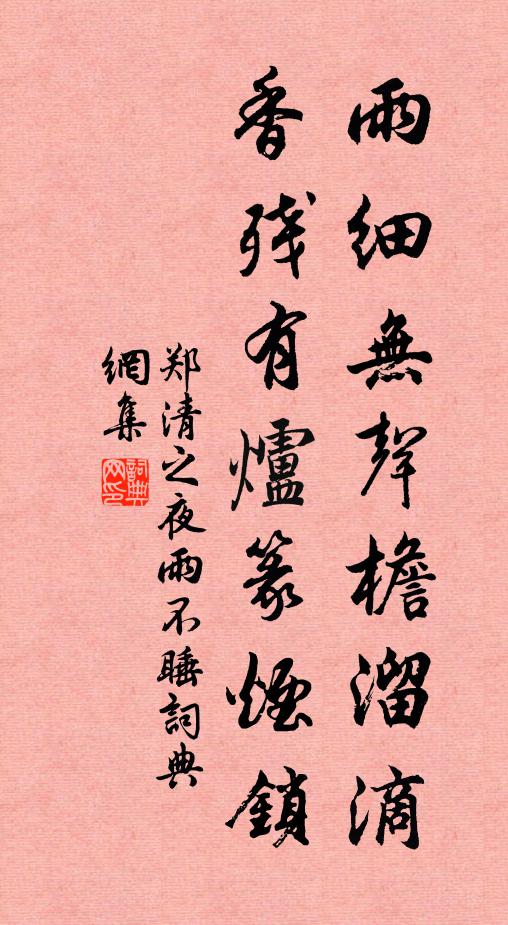 雨细無聲檐溜滴
香残有爐篆煙鎖
郑清之夜雨不睡詞典
網集
詞典
网印